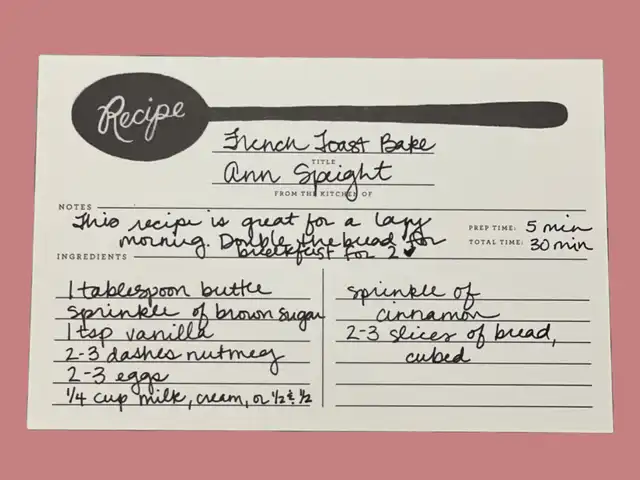 Recipe
French Toast Bake
TITLE
Ann Speight
FROM THE KITCHEN OF
NOTES
This recipe is great for a lazy
morning. Double the bread for
breakfast for 2
PREP TIME: 5 min
TOTAL TIME: 30 min
INGREDIENTS
1 tablespoon butter
sprinkle of brown sugar
1 tsp vanilla
2-3 dashes nutmeg
2-3 eggs
1/4 cup milk, cream, or 1/2 & 1/2
sprinkle of
cinnamon
2-3 slices of bread,
cubed